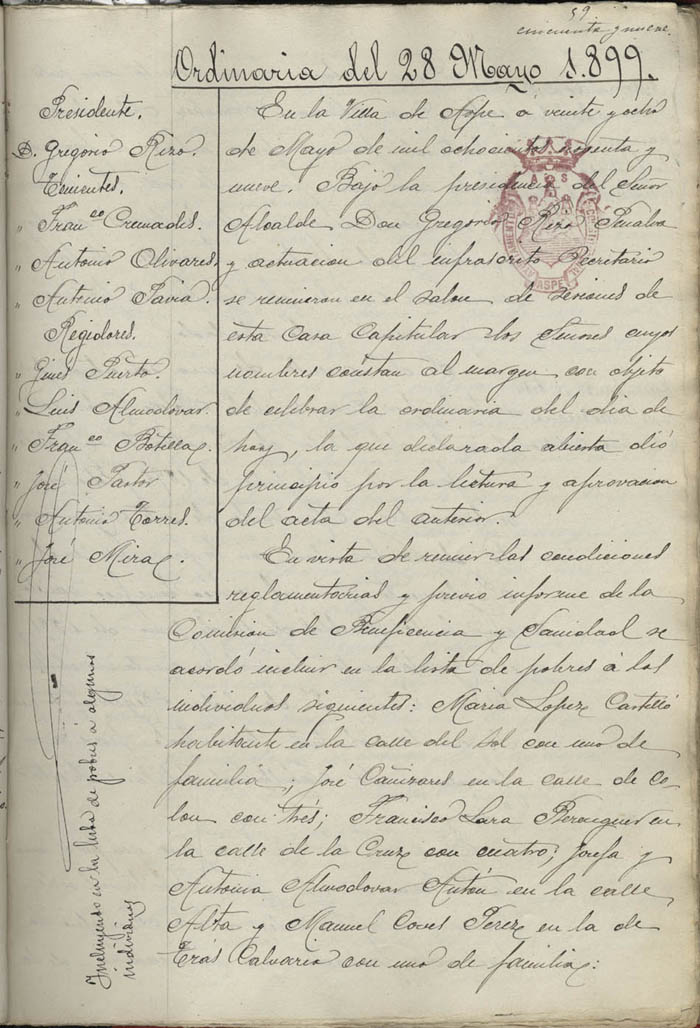 59
cincuenta y nueve.
Ordinaria del 28 Mayo 1.899.
Presidente.
D. Gregorio Rizo.
Tenientes.
" Fran.co Cremades.
" Antonio Olivares.
" Antonio Pavia.
Regidores.
" Gines Puerto.
" Luis Almodovar.
" Fran.co Botella.
" José Pastor
" Antonio Torres.
" José Mira.
En la Villa de Aspe á veinte y ocho
de Mayo de mil ochocientos noventa y
nueve. Bajo la presidencia del Señor
Alcalde Don Gregorio Rizo Penalva
y actuacion del infrascrito Secretario
se reunieron en el salon de sesiones de
esta Casa Capitular los Señores cuyos
nombres constan al margen con objeto
de celebrar la ordinaria del dia de
hoy, la que declarada abierta dió
principio por la lectura y aprovacion
del acta del anterior.
En vista de reunir las condiciones
reglamentarias y previo informe de la
Comision de Beneficencia y Sanidad se
acordó incluir en la lista de pobres á los
individuos siguientes: Maria Lopez Castelló
habitante en la calle del Sol con uno de
familia; José Cañizares en la calle de Co
lon con trés; Francisco Lara Berenguer en
la calle de la Cruz con cuatro; Josefa y
Antonia Almodovar Antón en la calle
Alta y Manuel Coves Perez en la de
Trás Calvario con uno de familia:
Incluyendo en la lista de pobres á algunos
individuos
ASPE